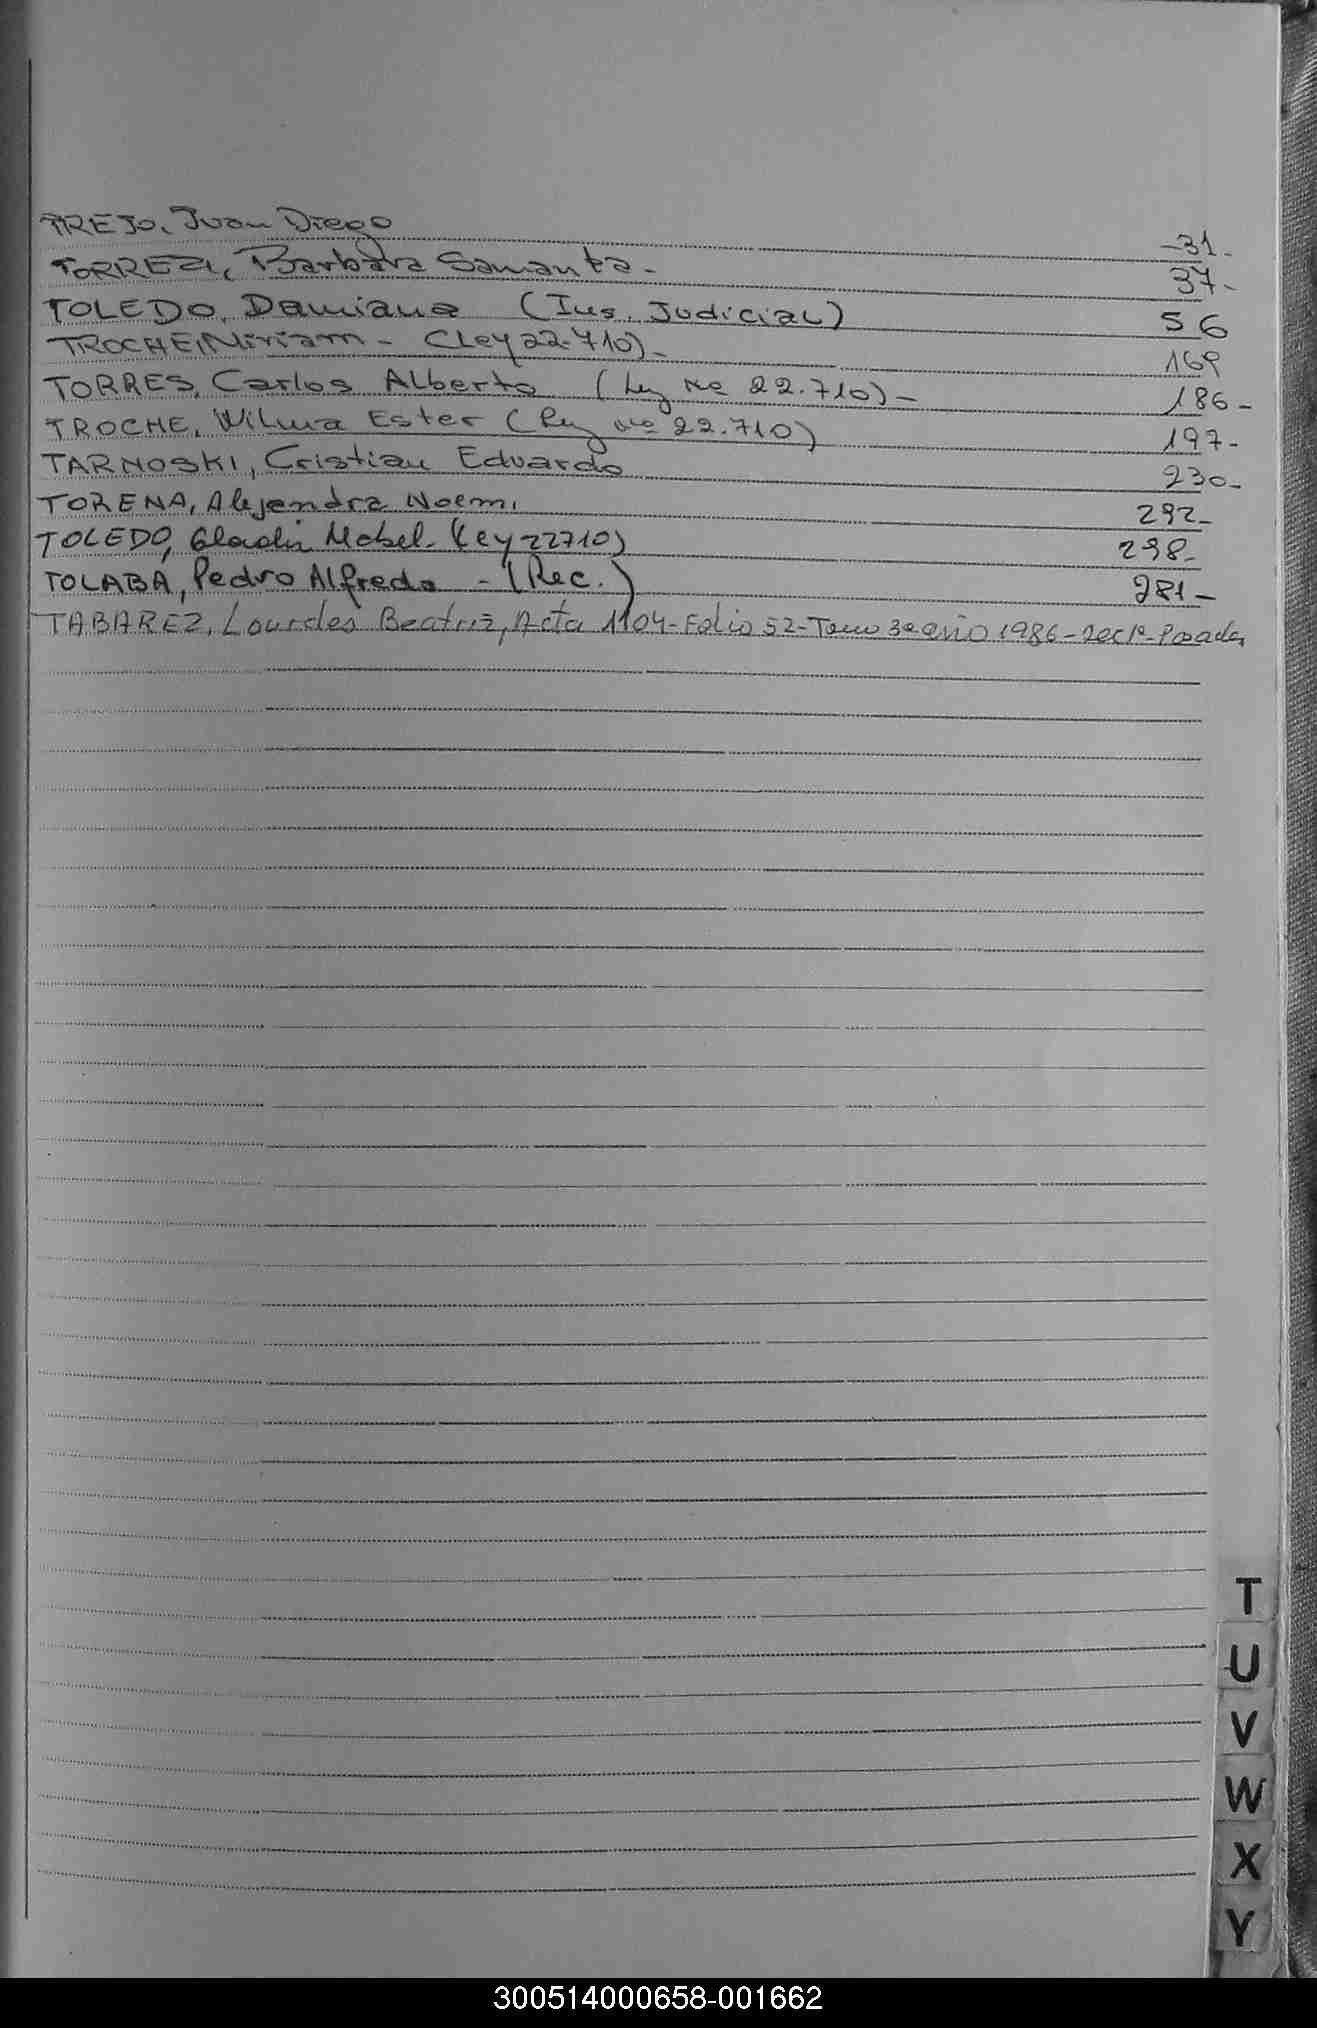 TREJO, Juan Diego -31-
TORREZ, Barbara Samanta- 37-
TOLEDO, Damiana (Ins. Judicial) 56
TROCHE, Miriam - (Ley 22.710)- 169
TORRES, Carlos Alberto (Ley No 22.710)- 186-
TROCHE, Wilma Ester (Ley No 22.710) 197-
TARNOSKI, Cristian Eduardo 230-
TORENA, Alejandra Noemi 292-
TOLEDO, Gladis Mabel- (Ley 22710) 298-
TOLABA, Pedro Alfredo - (Rec.) 281-
TABAREZ, Lourdes Beatriz, Acta 1104-Folio 52-Tomo 3º año 1986-Sec 1º- Posadas
T
U
V
W
X
Y
300514000658-001662